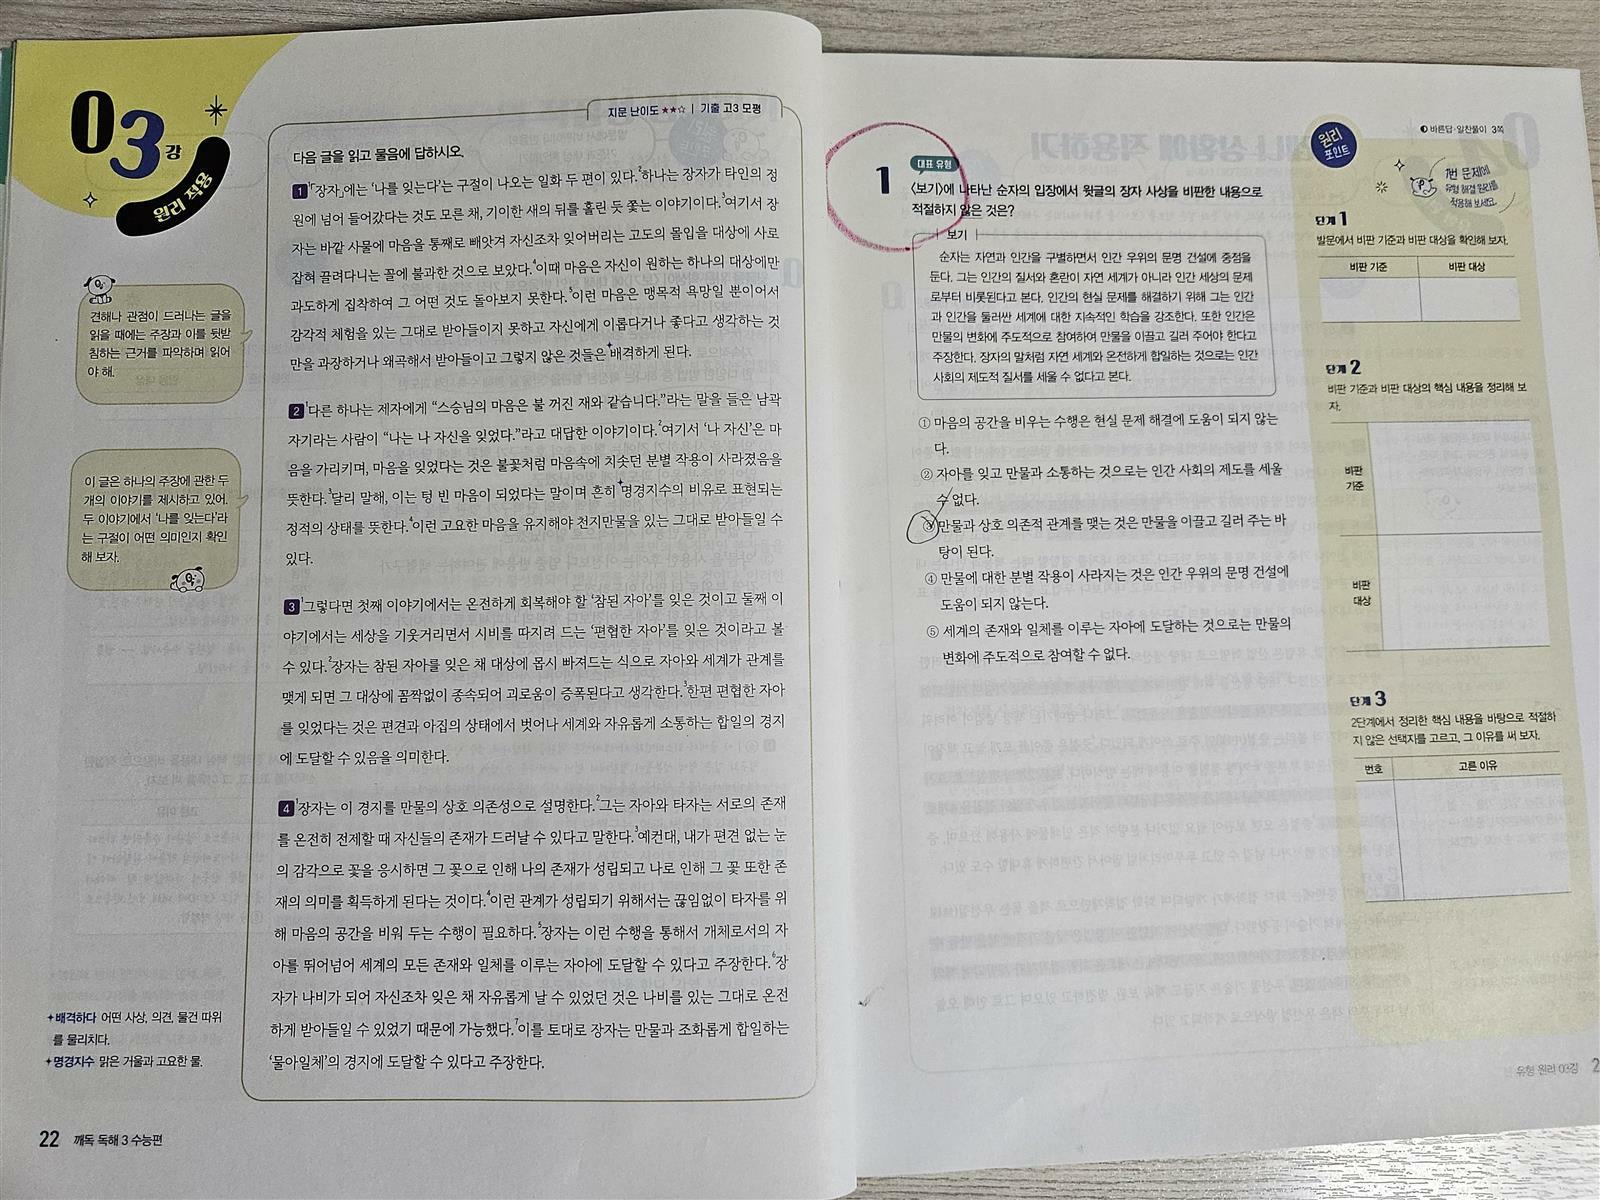 03강
원리 적용
지문 난이도 ★★☆ | 기출 고3 모평
다음 글을 읽고 물음에 답하시오.
1 ¹『장자』에는 ‘나를 잊는다’는 구절이 나오는 일화 두 편이 있다.²하나는 장자가 타인의 정
원에 넘어 들어갔다는 것도 모른 채, 기이한 새의 뒤를 홀린 듯 쫓는 이야기이다.³여기서 장
자는 바깥 사물에 마음을 통째로 빼앗겨 자신조차 잊어버리는 고도의 몰입을 대상에 사로
잡혀 끌려다니는 꼴에 불과한 것으로 보았다.⁴이때 마음은 자신이 원하는 하나의 대상에만
과도하게 집착하여 그 어떤 것도 돌아보지 못한다.⁵이런 마음은 맹목적 욕망일 뿐이어서
감각적 체험을 있는 그대로 받아들이지 못하고 자신에게 이롭다거나 좋다고 생각하는 것
만을 과장하거나 왜곡해서 받아들이고 그렇지 않은 것들은 배격하게 된다.
2 ¹다른 하나는 제자에게 “스승님의 마음은 불 꺼진 재와 같습니다.”라는 말을 들은 남곽
자기라는 사람이 “나는 나 자신을 잊었다.”라고 대답한 이야기이다.²여기서 ‘나 자신’은 마
음을 가리키며, 마음을 잊었다는 것은 불꽃처럼 마음속에 치솟던 분별 작용이 사라졌음을
뜻한다.³달리 말해, 이는 텅 빈 마음이 되었다는 말이며 흔히 명경지수의 비유로 표현되는
정적의 상태를 뜻한다.⁴이런 고요한 마음을 유지해야 천지만물을 있는 그대로 받아들일 수
있다.
3 ¹그렇다면 첫째 이야기에서는 온전하게 회복해야 할 ‘참된 자아’를 잊은 것이고 둘째 이
야기에서는 세상을 기웃거리면서 시비를 따지려 드는 ‘편협한 자아’를 잊은 것이라고 볼
수 있다.²장자는 참된 자아를 잊은 채 대상에 몹시 빠져드는 식으로 자아와 세계가 관계를
맺게 되면 그 대상에 꼼짝없이 종속되어 괴로움이 증폭된다고 생각한다.³한편 편협한 자아
를 잊었다는 것은 편견과 아집의 상태에서 벗어나 세계와 자유롭게 소통하는 합일의 경지
에 도달할 수 있음을 의미한다.
4 ¹장자는 이 경지를 만물의 상호 의존성으로 설명한다.²그는 자아와 타자는 서로의 존재
를 온전히 전제할 때 자신들의 존재가 드러날 수 있다고 말한다.³예컨대, 내가 편견 없는 눈
의 감각으로 꽃을 응시하면 그 꽃으로 인해 나의 존재가 성립되고 나로 인해 그 꽃 또한 존
재의 의미를 획득하게 된다는 것이다.⁴이런 관계가 성립되기 위해서는 끊임없이 타자를 위
해 마음의 공간을 비워 두는 수행이 필요하다.⁵장자는 이런 수행을 통해서 개체로서의 자
아를 뛰어넘어 세계의 모든 존재와 일체를 이루는 자아에 도달할 수 있다고 주장한다.⁶장
자가 나비가 되어 자신조차 잊은 채 자유롭게 날 수 있었던 것은 나비를 있는 그대로 온전
하게 받아들일 수 있었기 때문에 가능했다.⁷이를 토대로 장자는 만물과 조화롭게 합일하는
‘물아일체’의 경지에 도달할 수 있다고 주장한다.
견해나 관점이 드러나는 글을
읽을 때에는 주장과 이를 뒷받
침하는 근거를 파악하며 읽어
야 해.
이 글은 하나의 주장에 관한 두
개의 이야기를 제시하고 있어.
두 이야기에서 ‘나를 잊는다’라
는 구절이 어떤 의미인지 확인
해 보자.
✦배격하다 어떤 사상, 의견, 물건 따위
를 물리치다.
✦명경지수 맑은 거울과 고요한 물.
22 깨독 독해 3 수능편
1
대표 유형
〈보기〉에 나타난 순자의 입장에서 윗글의 장자 사상을 비판한 내용으로
적절하지 않은 것은?
보기
순자는 자연과 인간을 구별하면서 인간 우위의 문명 건설에 중점을
둔다. 그는 인간의 질서와 혼란이 자연 세계가 아니라 인간 세상의 문제
로부터 비롯된다고 본다. 인간의 현실 문제를 해결하기 위해 그는 인간
과 인간을 둘러싼 세계에 대한 지속적인 학습을 강조한다. 또한 인간은
만물의 변화에 주도적으로 참여하여 만물을 이끌고 길러 주어야 한다고
주장한다. 장자의 말처럼 자연 세계와 온전하게 합일하는 것으로는 인간
사회의 제도적 질서를 세울 수 없다고 본다.
① 마음의 공간을 비우는 수행은 현실 문제 해결에 도움이 되지 않는
다.
② 자아를 잊고 만물과 소통하는 것으로는 인간 사회의 제도를 세울
수 없다.
③ 만물과 상호 의존적 관계를 맺는 것은 만물을 이끌고 길러 주는 바
탕이 된다.
④ 만물에 대한 분별 작용이 사라지는 것은 인간 우위의 문명 건설에
도움이 되지 않는다.
⑤ 세계의 존재와 일체를 이루는 자아에 도달하는 것으로는 만물의
변화에 주도적으로 참여할 수 없다.
바른답·알찬풀이 3쪽
원리
포인트
1번 문제에
유형 해결 원리를
적용해 보세요.
단계 1
발문에서 비판 기준과 비판 대상을 확인해 보자.
비판 기준 비판 대상
단계 2
비판 기준과 비판 대상의 핵심 내용을 정리해 보
자.
비판
기준
비판
대상
단계 3
2단계에서 정리한 핵심 내용을 바탕으로 적절하
지 않은 선택지를 고르고, 그 이유를 써 보자.
번호 고른 이유
유형 원리 03강 2